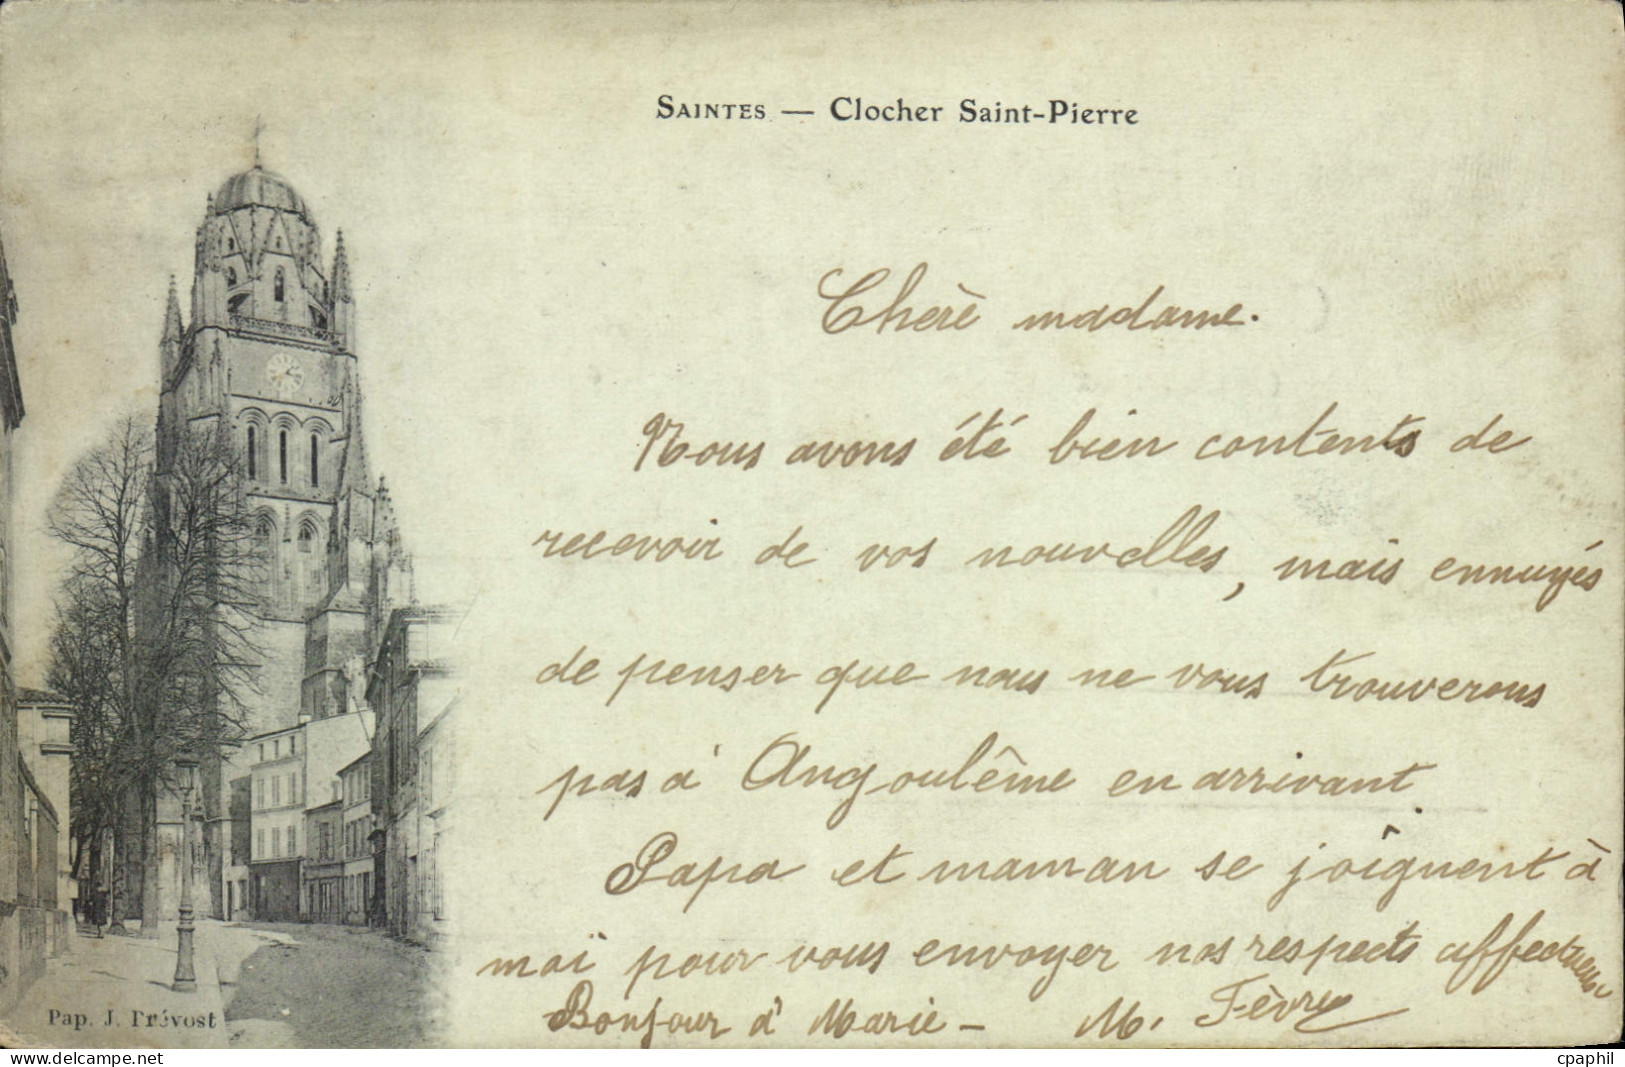 SAINTES — Clocher Saint-Pierre
Chère madame.
Nous avons été bien contents de
recevoir de vos nouvelles, mais ennuyés
de penser que nous ne vous trouverons
pas à Angoulême en arrivant.
Papa et maman se joignent à
moi pour vous envoyer nos respects affectueux
Bonjour à Marie – M. Fèvre
Pap. J. Prévost
www.delcampe.net
cpaphil